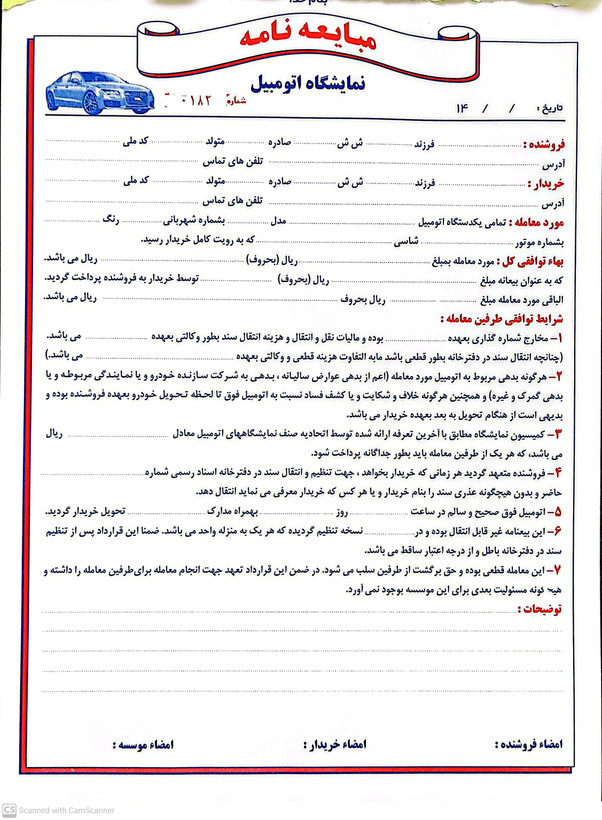 بنام خدا
مبایعه نامه
نمایشگاه اتومبیل
شماره ۰۱۸۲
تاریخ : / / ۱۴
فروشنده : فرزند ش ش صادره متولد کد ملی
آدرس تلفن های تماس
خریدار : فرزند ش ش صادره متولد کد ملی
آدرس تلفن های تماس
مورد معامله : تمامی یکدستگاه اتومبیل مدل بشماره شهربانی رنگ
بشماره موتور شاسی که به رویت کامل خریدار رسید.
بهاء توافقی کل : مورد معامله بمبلغ ریال (بحروف) ریال می باشد.
که به عنوان بیعانه مبلغ ریال (بحروف) توسط خریدار به فروشنده پرداخت گردید.
الباقی مورد معامله مبلغ ریال بحروف ریال می باشد.
شرایط توافقی طرفین معامله :
۱- مخارج شماره گذاری بعهده بوده و مالیات نقل و انتقال و هزینه انتقال سند بطور وکالتی بعهده می باشد.
(چنانچه انتقال سند در دفترخانه بطور قطعی باشد مابه التفاوت هزینه قطعی و وکالتی بعهده می باشد.)
۲- هرگونه بدهی مربوط به اتومبیل مورد معامله (اعم از بدهی عوارض سالیانه ، بدهی به شرکت سازنده خودرو و یا نمایندگی مربوطه و یا
بدهی گمرک و غیره) و همچنین هرگونه خلاف و شکایت و یا کشف فساد نسبت به اتومبیل فوق تا لحظه تحویل خودرو بعهده فروشنده بوده و
بدیهی است از هنگام تحویل به بعد بعهده خریدار می باشد.
۳- کمیسیون نمایشگاه مطابق با آخرین تعرفه ارائه شده توسط اتحادیه صنف نمایشگاههای اتومبیل معادل ریال
می باشد، که هر یک از طرفین معامله باید بطور جداگانه پرداخت شود.
۴- فروشنده متعهد گردید هر زمانی که خریدار بخواهد ، جهت تنظیم و انتقال سند در دفترخانه اسناد رسمی شماره
حاضر و بدون هیچگونه عذری سند را بنام خریدار و یا هر کس که خریدار معرفی می نماید انتقال دهد.
۵- اتومبیل فوق صحیح و سالم در ساعت روز بهمراه مدارک تحویل خریدار گردید.
۶- این بیعنامه غیر قابل انتقال بوده و در نسخه تنظیم گردیده که هر یک به منزله واحد می باشد. ضمنا این قرارداد پس از تنظیم
سند در دفترخانه باطل و از درجه اعتبار ساقط می باشد.
۷- این معامله قطعی بوده و حق برگشت از طرفین سلب می شود. در ضمن این قرارداد تعهد جهت انجام معامله برای طرفین معامله را داشته و
هیچ گونه مسئولیت بعدی برای این موسسه بوجود نمی آورد.
توضیحات :
امضاء فروشنده : امضاء خریدار : امضاء موسسه :
CS Scanned with CamScanner